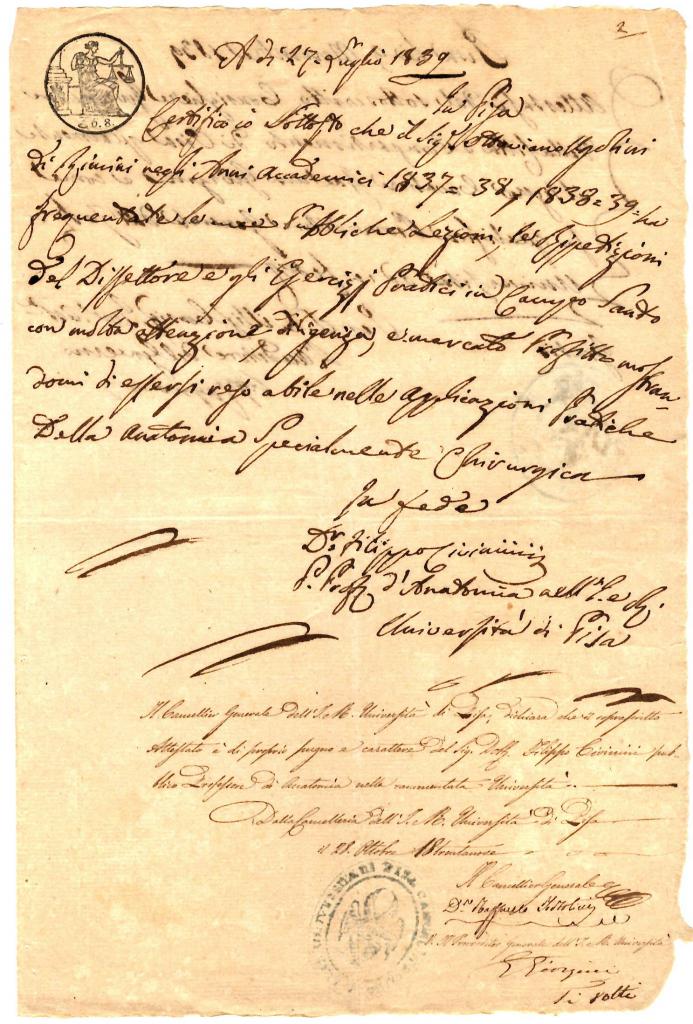 2
A di 27. Luglio 1839
In Pisa
C. 0. 8.
Certifico io Sottotto che il Sig. Ottaviano Ugolini
di Rimini negli Anni Accademici 1837=38, 1838=39= ha
frequentate le mie Pubbliche Lezioni, le Ripetizioni
del Dissettore e gli Esercizj Pratici in Campo Santo
con molta attenzione diligenza, e mercato Profitto mostran-
domi di essersi reso abile nelle applicazioni Pratiche
della Anatomia Specialmente Chirurgica
In fede
Dr. Filippo Civinini
P. Prof. d'Anatomia nell' I. e R.
Università di Pisa
Il Cancellier Generale dell' I. e R. Università di Pisa, dichiara che il soprascritto
Attestato è di proprio pugno e carattere del Sig. Dott. Filippo Civinini pub-
blico Professore di Anatomia nella rammentata Università
Dalla Cancelleria dell' I. e R. Università di Pisa
il 28. Ottobre 18trentanove
Il Cancellier Generale
Dre. Raffaele
V. Il Provveditor Generale dell' I. e R. Università
G Giorgini
Si volti